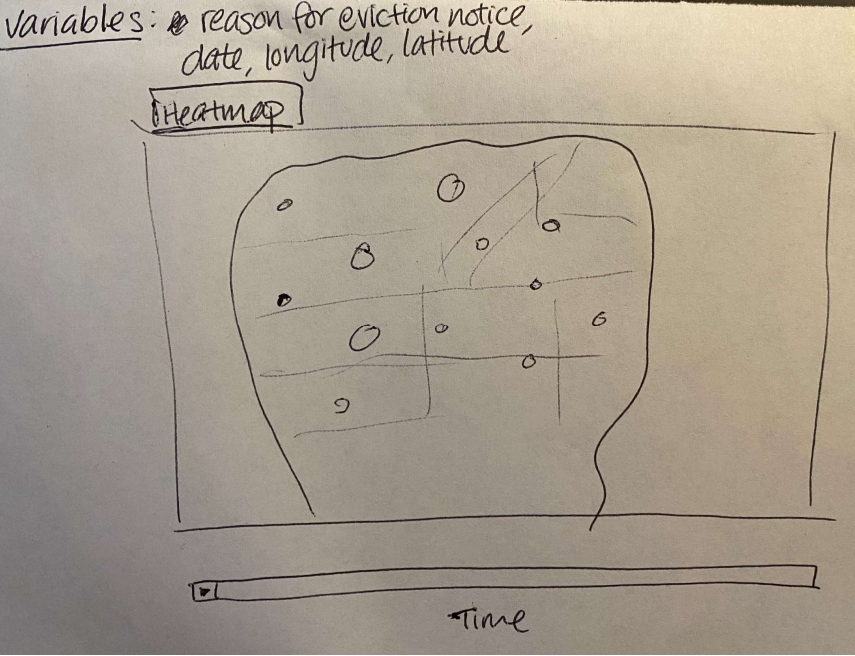 Variables: reason for eviction notice,
date, longitude, latitude
Heatmap
Time